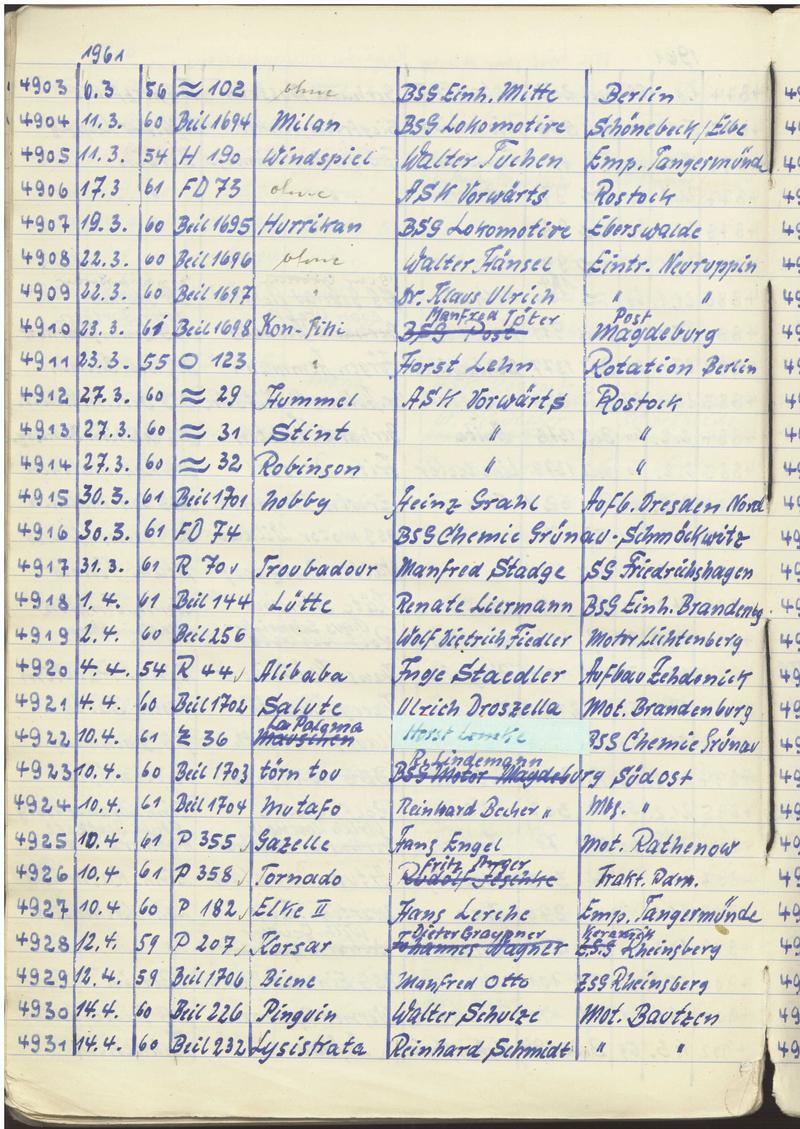 1961
4903 6.3 56 ≈ 102 ohne BSG Einh. Mitte Berlin
4904 11.3. 60 Beil 1694 Milan BSG Lokomotive Schönebeck/Elbe
4905 11.3. 54 H 190 Windspiel Walter Tuchen Emp. Tangermünde
4906 17.3 61 FD 73 ohne ASK Vorwärts Rostock
4907 19.3. 60 Beil 1695 Hurrikan BSG Lokomotive Eberswalde
4908 22.3. 60 Beil 1696 ohne Walter Hänsel Eintr. Neuruppin
4909 22.3. 60 Beil 1697 " Dr. Klaus Ulrich " "
Manfred Töter Post
4910 23.3. 61 Beil 1698 Kon-Tiki BSG Post Magdeburg
4911 23.3. 55 O 123 " Horst Lehn Rotation Berlin
4912 27.3. 60 ≈ 29 Hummel ASK Vorwärts Rostock
4913 27.3. 60 ≈ 31 Stint " "
4914 27.3. 60 ≈ 32 Robinson " "
4915 30.3. 61 Beil 1701 hobby Heinz Grahl Aufb. Dresden Nord
4916 30.3. 61 FD 74 BSG Chemie Grünau-Schmöckwitz
4917 31.3. 61 R 70 Troubadour Manfred Stadge SG Friedrichshagen
4918 1.4. 61 Beil 144 Lütte Renate Liermann BSG Einh. Brandenbg.
4919 2.4. 60 Beil 256 Wolf Dietrich Fiedler Motor Lichtenberg
4920 4.4. 54 R 44 Alibaba Inge Staedler Aufbau Zehdenick
4921 4.4. 60 Beil 1702 Salute Ulrich Droszella Mot. Brandenburg
La Paloma
4922 10.4. 61 Z 36 Mäuschen Horst Lemke BSG Chemie Grünau
R. Lindemann
4923 10.4. 60 Beil 1703 törn tou BSG Motor Magdeburg Südost
4924 10.4. 61 Beil 1704 Mutafo Reinhard Becher " Mbg. "
4925 10.4 61 P 355 Gazelle Hans Engel Mot. Rathenow
Fritz Unger
4926 10.4 61 P 358 Tornado Rudolf Trakt. Pdm.
4927 10.4 60 P 182 Elke II Hans Lerche Emp. Tangermünde
Dieter Graupner Keramik
4928 12.4. 59 P 207 Korsar Johannes Wagner ZSG Rheinsberg
4929 12.4. 59 Beil 1706 Biene Manfred Otto ZSG Rheinsberg
4930 14.4. 60 Beil 226 Pinguin Walter Schulze Mot. Bautzen
4931 14.4. 60 Beil 232 Lysistrata Reinhard Schmidt " "